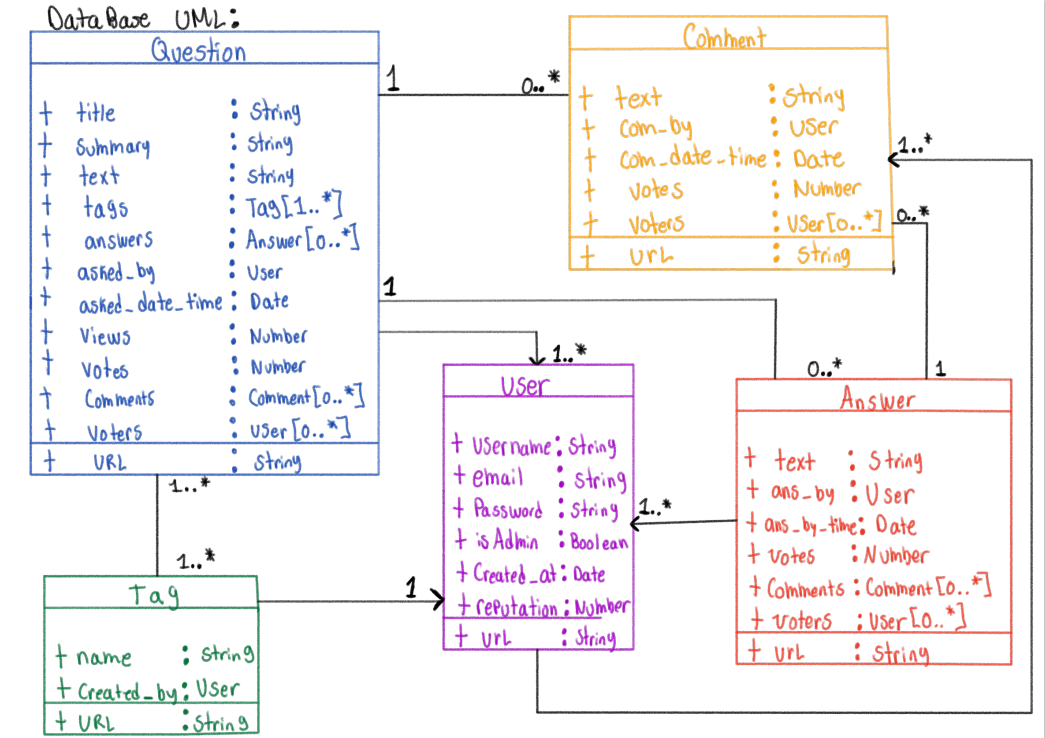 DataBase UML:
Question
+ title : String
+ Summary : String
+ text : String
+ tags : Tag[1..*]
+ answers : Answer[0..*]
+ asked_by : User
+ asked_date_time : Date
+ Views : Number
+ Votes : Number
+ Comments : Comment[0..*]
+ Voters : User[0..*]
+ URL : String
1
0..*
Comment
+ text : String
+ Com_by : User
+ Com_date_time : Date
+ Votes : Number
+ Voters : User[0..*]
+ Url : String
1..*
0..*
1
1..*
0..*
1
User
+ Username : String
+ email : String
+ Password : String
+ isAdmin : Boolean
+ Created_at : Date
+ reputation : Number
+ Url : String
Answer
+ text : String
+ ans_by : User
+ ans_by_time : Date
+ Votes : Number
+ Comments : Comment[0..*]
+ Voters : User[0..*]
+ Url : String
1..*
1..*
1..*
1
Tag
+ name : String
+ Created_by : User
+ URL : String